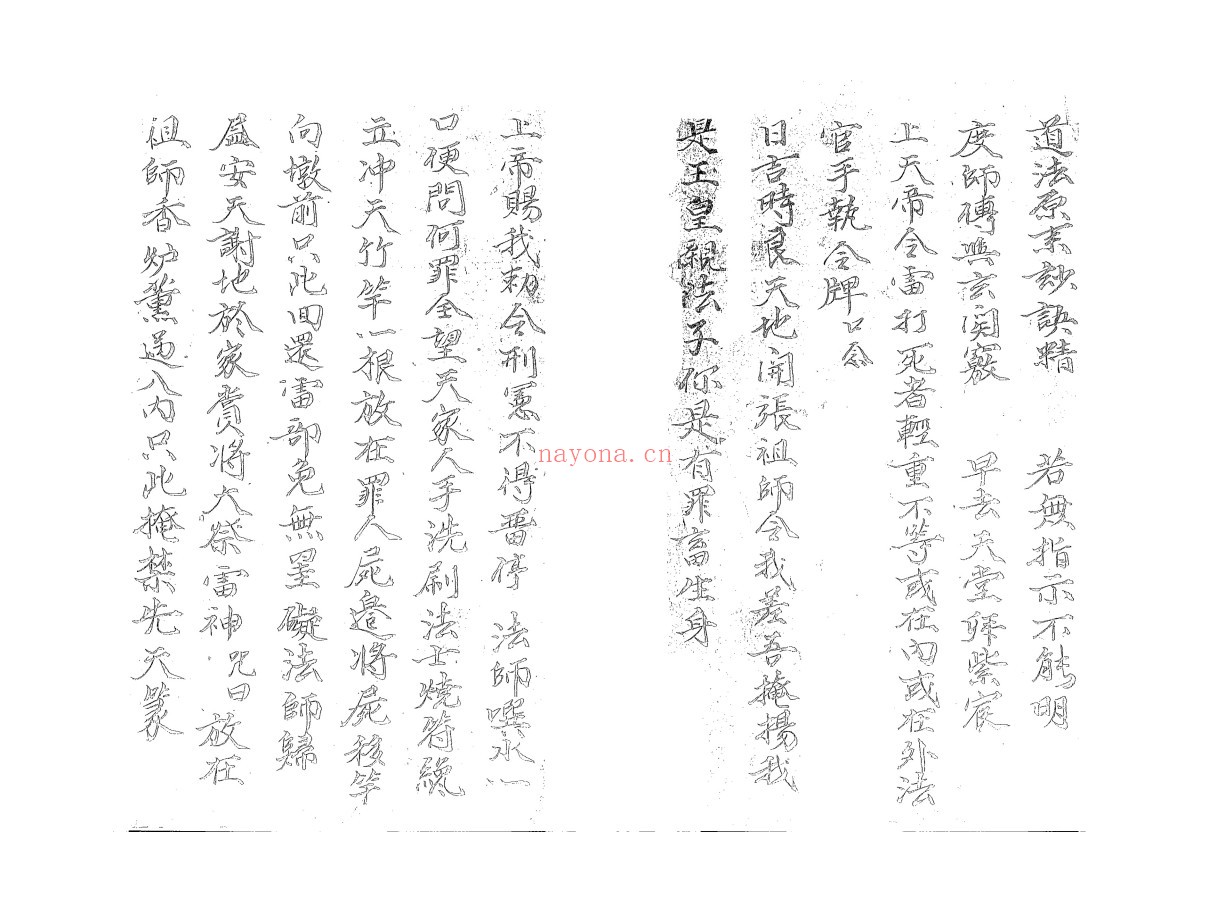 道法原来訬訣精 若無指示不能明
度師傅與玄関竅 早去天堂拜紫宸
上天帝令雷打死者輕重不等或在內或在外法
官手執令牌 口念
日吉時良天地開張祖師令我差吾掩揚我
是玉皇親法子你是有罪畜生身
上帝賜我勅令刑憲不得畱停 法師噀水一
口便問何罪全望天家人手洗刷法士燒符纔
立冲天竹竿一根放在罪人屍邊將屍移竿
向墩前只此回還雷部免無罣礙法師歸
盔安天謝地於家賞將大祭雷神 咒曰 放在
祖師香炉薰过八內只此掩禁先天篆
nayona.cn